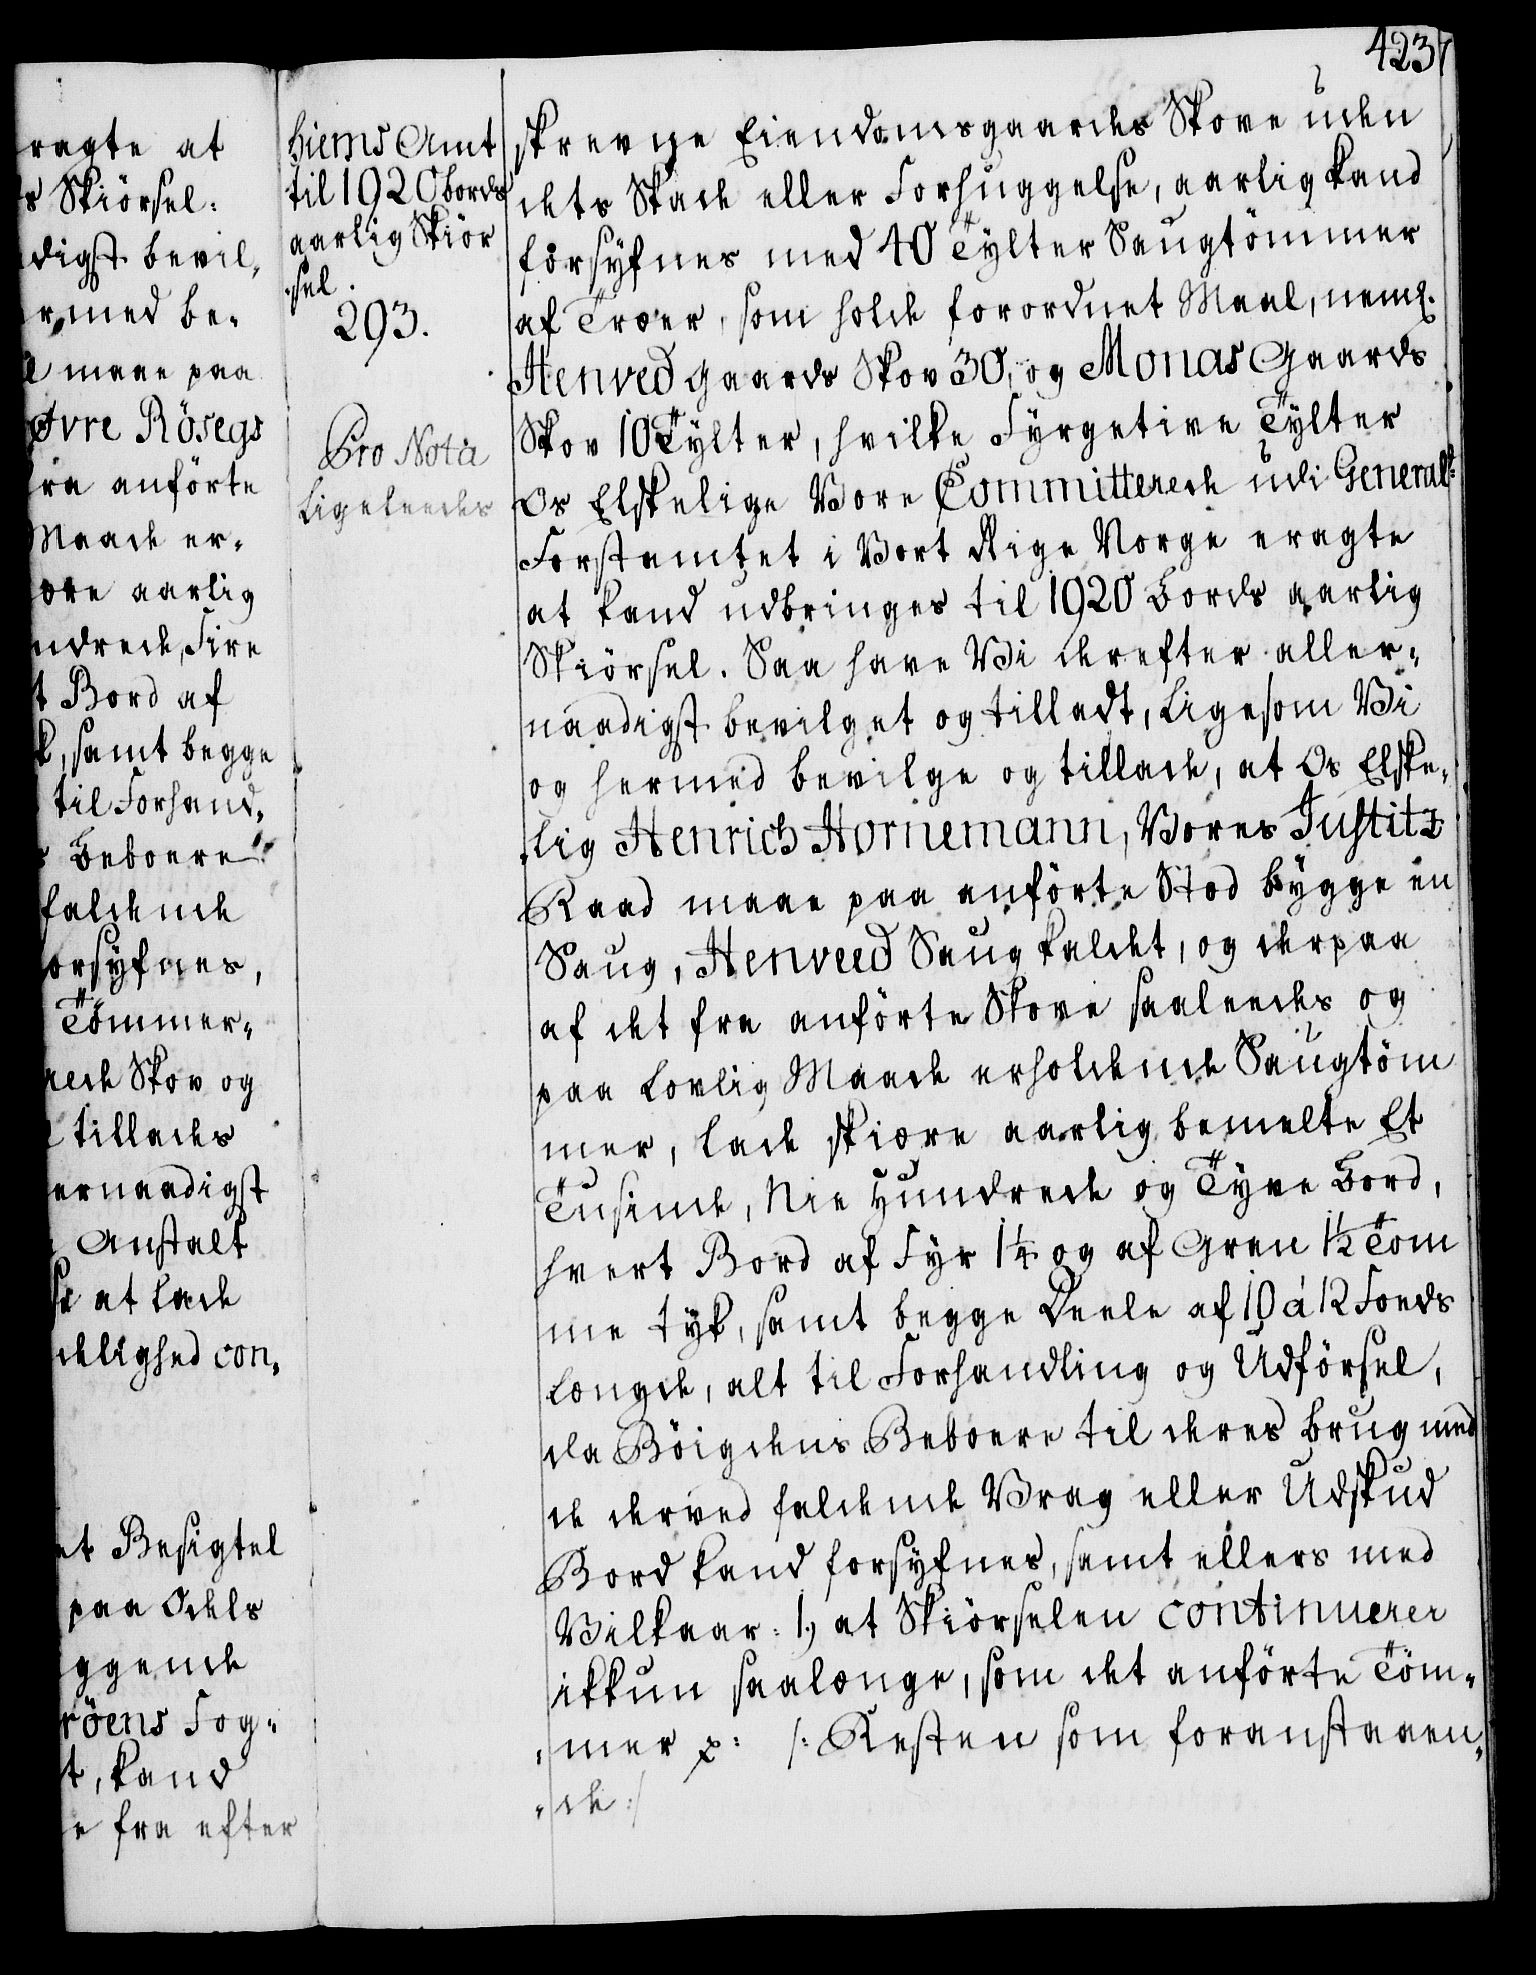 423
ragte at
s Skiörsel:
digst bevil,
rmed be-
maae paa
Øvre Rösegs
fra anförte
Maade er-
vre aarlig
undrede, Fire
t Bord af
k, samt begge
til Forhand-
Beboere
faldende
orsyfnes,
Tömmer-
rede Skov og
tillades
ernaadigst
Anstalt
se at lade
delighed con-
et Besigtel
paa Odels
ggende
röens Fog-
t, kand
e fra efter
hiems Amt
til 1920 bords
aarlig Skiör
sel.
293.
Pro Nota
Ligeleedes
skrevne Eiendomsgaardes Skove uden
dets Skade eller Forhuggelse, aarlig kand
forsyfnes med 40 Tylter Saugtömmer
af Træer, som holde forordnet Maal, neml.
Henved gaards Skov 30, og Monas Gaards
Skov 10 Tylter, hvilke Fyrgetive Tylter
Os Elskelige Vore Committerede udi General-
Forstamtet i Vort Rige Norge eragte
at kand udbringes til 1920 Bords aarlig
Skiörsel. Saa have Vi derefter aller-
naadigst bevilget og tilladt, ligesom Vi
og hermed bevilge og tillade, at Os Elske-
lig Henrich Hornemann, Vores Justitz
Raad maae paa anförte Stod bygge en
Saug, Henveed Saug kaldet, og derpaa
af det fra anförte Skove saaleedes og
paa Lovlig Maade erholdende Saugtöm
mer, lade skiære aarlig bemelte Et
Tusinde, Nie Hundrede og Tyve Bord,
hvert Bord af Fyr 1¼ og af Gran 1½ Tom
me tyk, samt begge Deele af 10 á 12 Foeds
Længde, alt til Forhandling og Udförsel,
da Böigdens Beboere til deres brug med
de derved faldende Vrag eller Udskud
Bord kand forsyfnes, samt ellers med
Vilkaar: 1.) at Skiörselen continuerer
ikkun saalænge, som det anförte Töm-
mer p: /: Resten som foranstaaen-
de :/